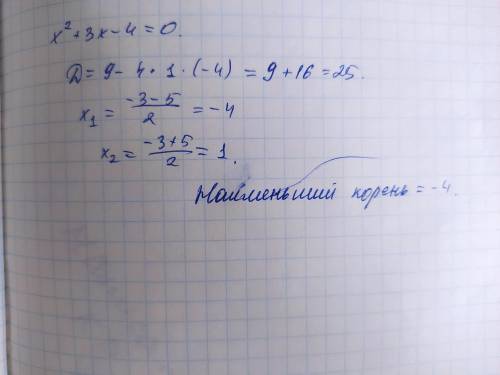 x² + 3x - 4 = 0.
D = 9 - 4 · 1 · (-4) = 9 + 16 = 25.
x₁ = (-3 - 5)/2 = -4
x₂ = (-3 + 5)/2 = 1.
Наименьший корень = -4.